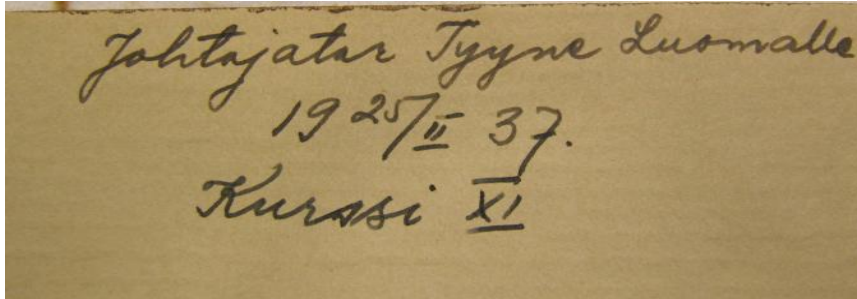 Johtajatar Tyyne Luomalle
19 25/II 37.
Kurssi XI